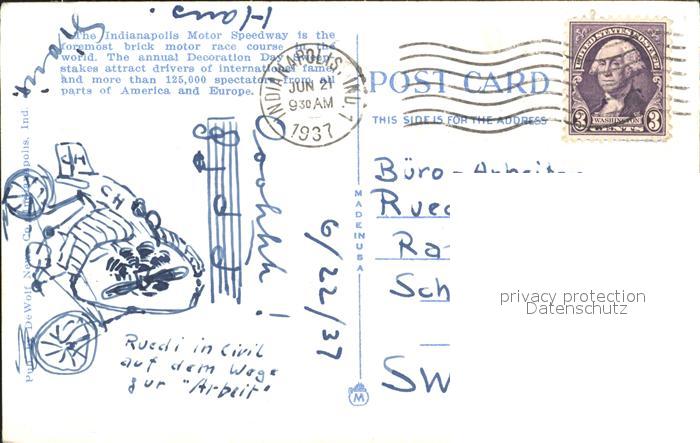 The Indianapolis Motor Speedway is the
foremost brick motor race course in the
world. The annual Decoration Day
stakes attract drivers of international fame,
and more than 125,000 spectators from all
parts of America and Europe.
Hans.
INDIANAPOLIS, IND. 1
JUN 21
930 AM
1937
POST CARD
THIS SIDE IS FOR THE ADDRESS
UNITED STATES POSTAGE
3 WASHINGTON 3
CENTS
DeWolf News Co., Indianapolis, Ind.
CH
CH
6/22/37
Ruedi in Civil
auf dem Wege
zur "Arbeit"
MADE IN USA
M
Büro-Arbeit
Rued
Ra
Sch
SW
privacy protection
Datenschutz